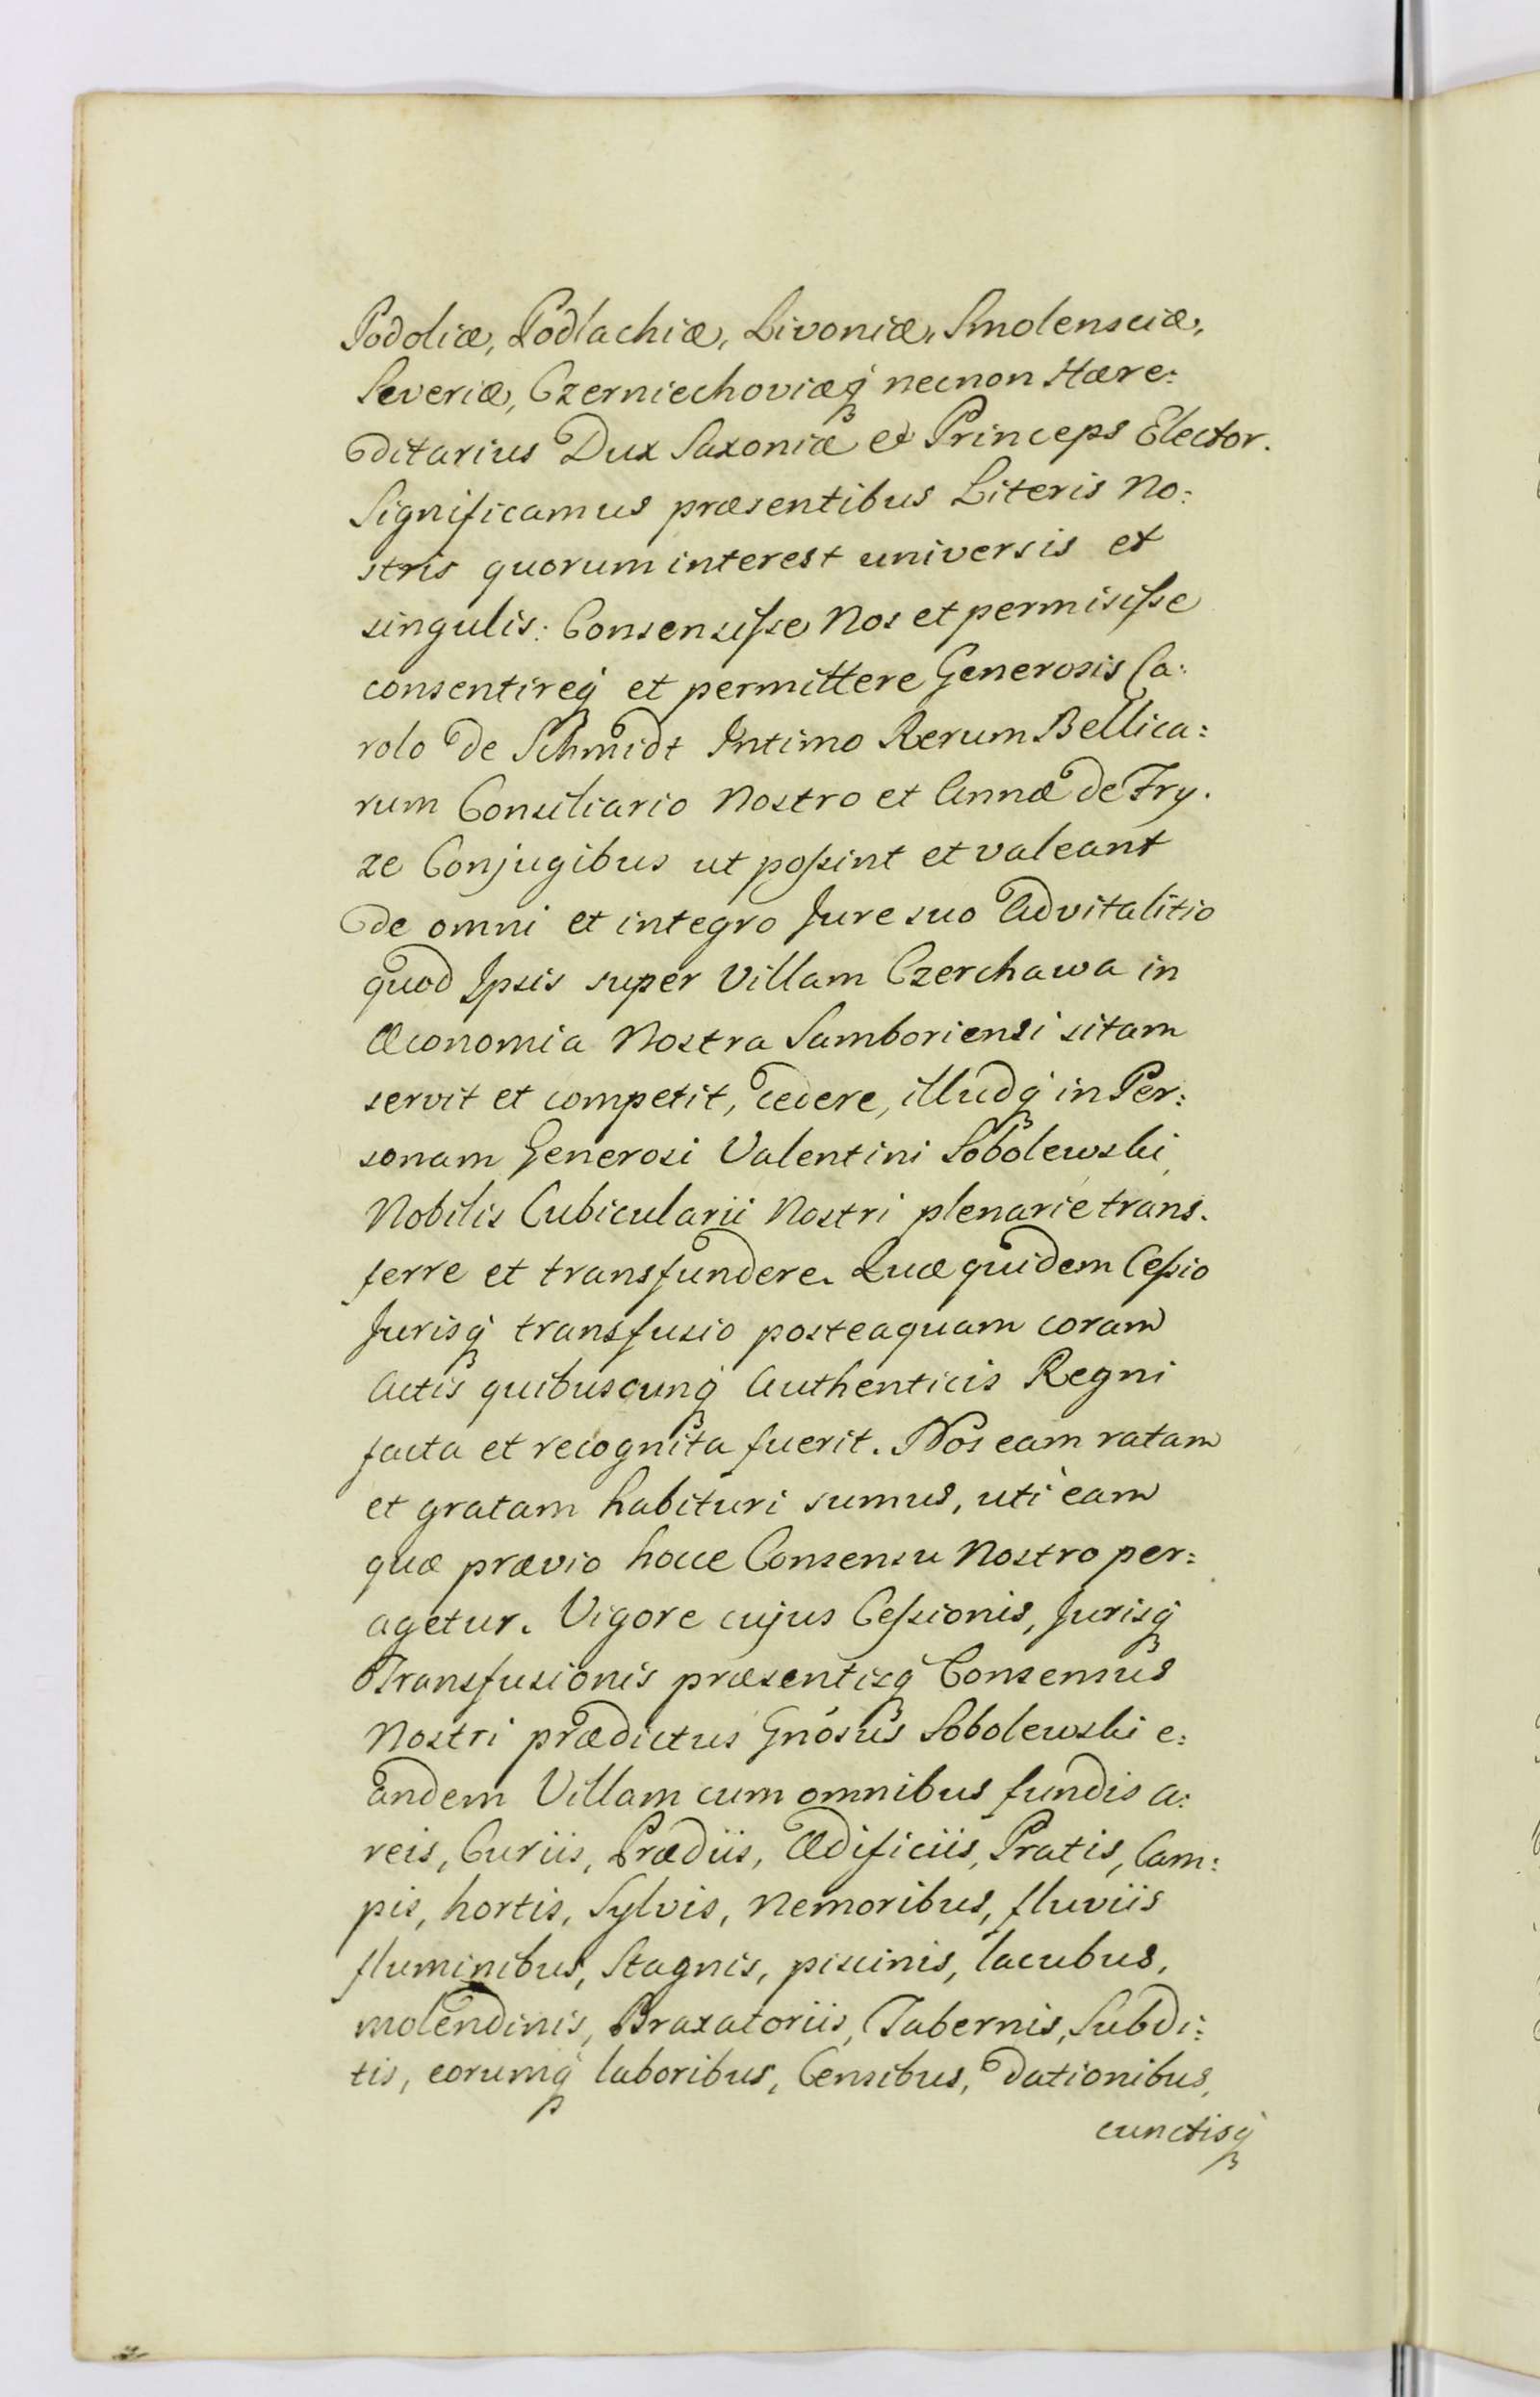 Podoliæ, Podlachiæ, Livoniæ, Smolensciæ,
Severiæ, Czerniechoviæq̃ necnon Hære:
ditarius Dux Saxoniæ et Princeps Elector.
Significamus præsentibus Literis No:
stris quorum interest universis et
singulis: Consensiſse Nos et permisiſse
consentireq̃ et permittere Generosis Ca:
rolo de Schmidt Intimo Rerum Bellica:
rum Consiliario Nostro et Annæ de Fry.
ze Conjugibus ut poſsint et valeant
de omni et integro Jure suo Advitalitio
quod Ipsis super Villam Czerchawa in
Œconomia Nostra Samboriensi sitam
servit et competit, cedere, illudq̃ in Per:
sonam Generosi Valentini Sobolewski
Nobilis Cubicularii Nostri plenarie trans.
ferre et transfundere. Quæ quidem Ceſsio
Jurisq̃ transfusio posteaquam coram
Actis quibuscunq̃ Authenticis Regni
facta et recognita fuerit. Nos eam ratam
et gratam habituri sumus, uti eam
quæ prævio hocce Consensu Nostro per:
agetur. Vigore cujus Ceſsionis, Jurisq̃
Transfusionis præsentisq̃ Consensus
Nostri prædictus Gnósus Sobolewski e:
andem Villam cum omnibus fundis a:
reis, Curiis, Prædiis, Ædificiis, Pratis, Cam:
pis, hortis, Sylvis, Nemoribus, fluviis
fluminibus, Stagnis, piscinis, lacubus,
molendinis, Braxatoriis, Tabernis, Subdi:
tis, eorumq̃ laboribus, Censibus, Dationibus,
cunctisq̃